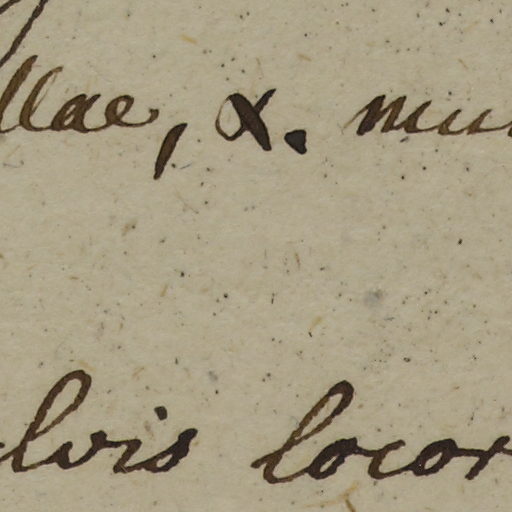 llae, &. mu
lvis locor